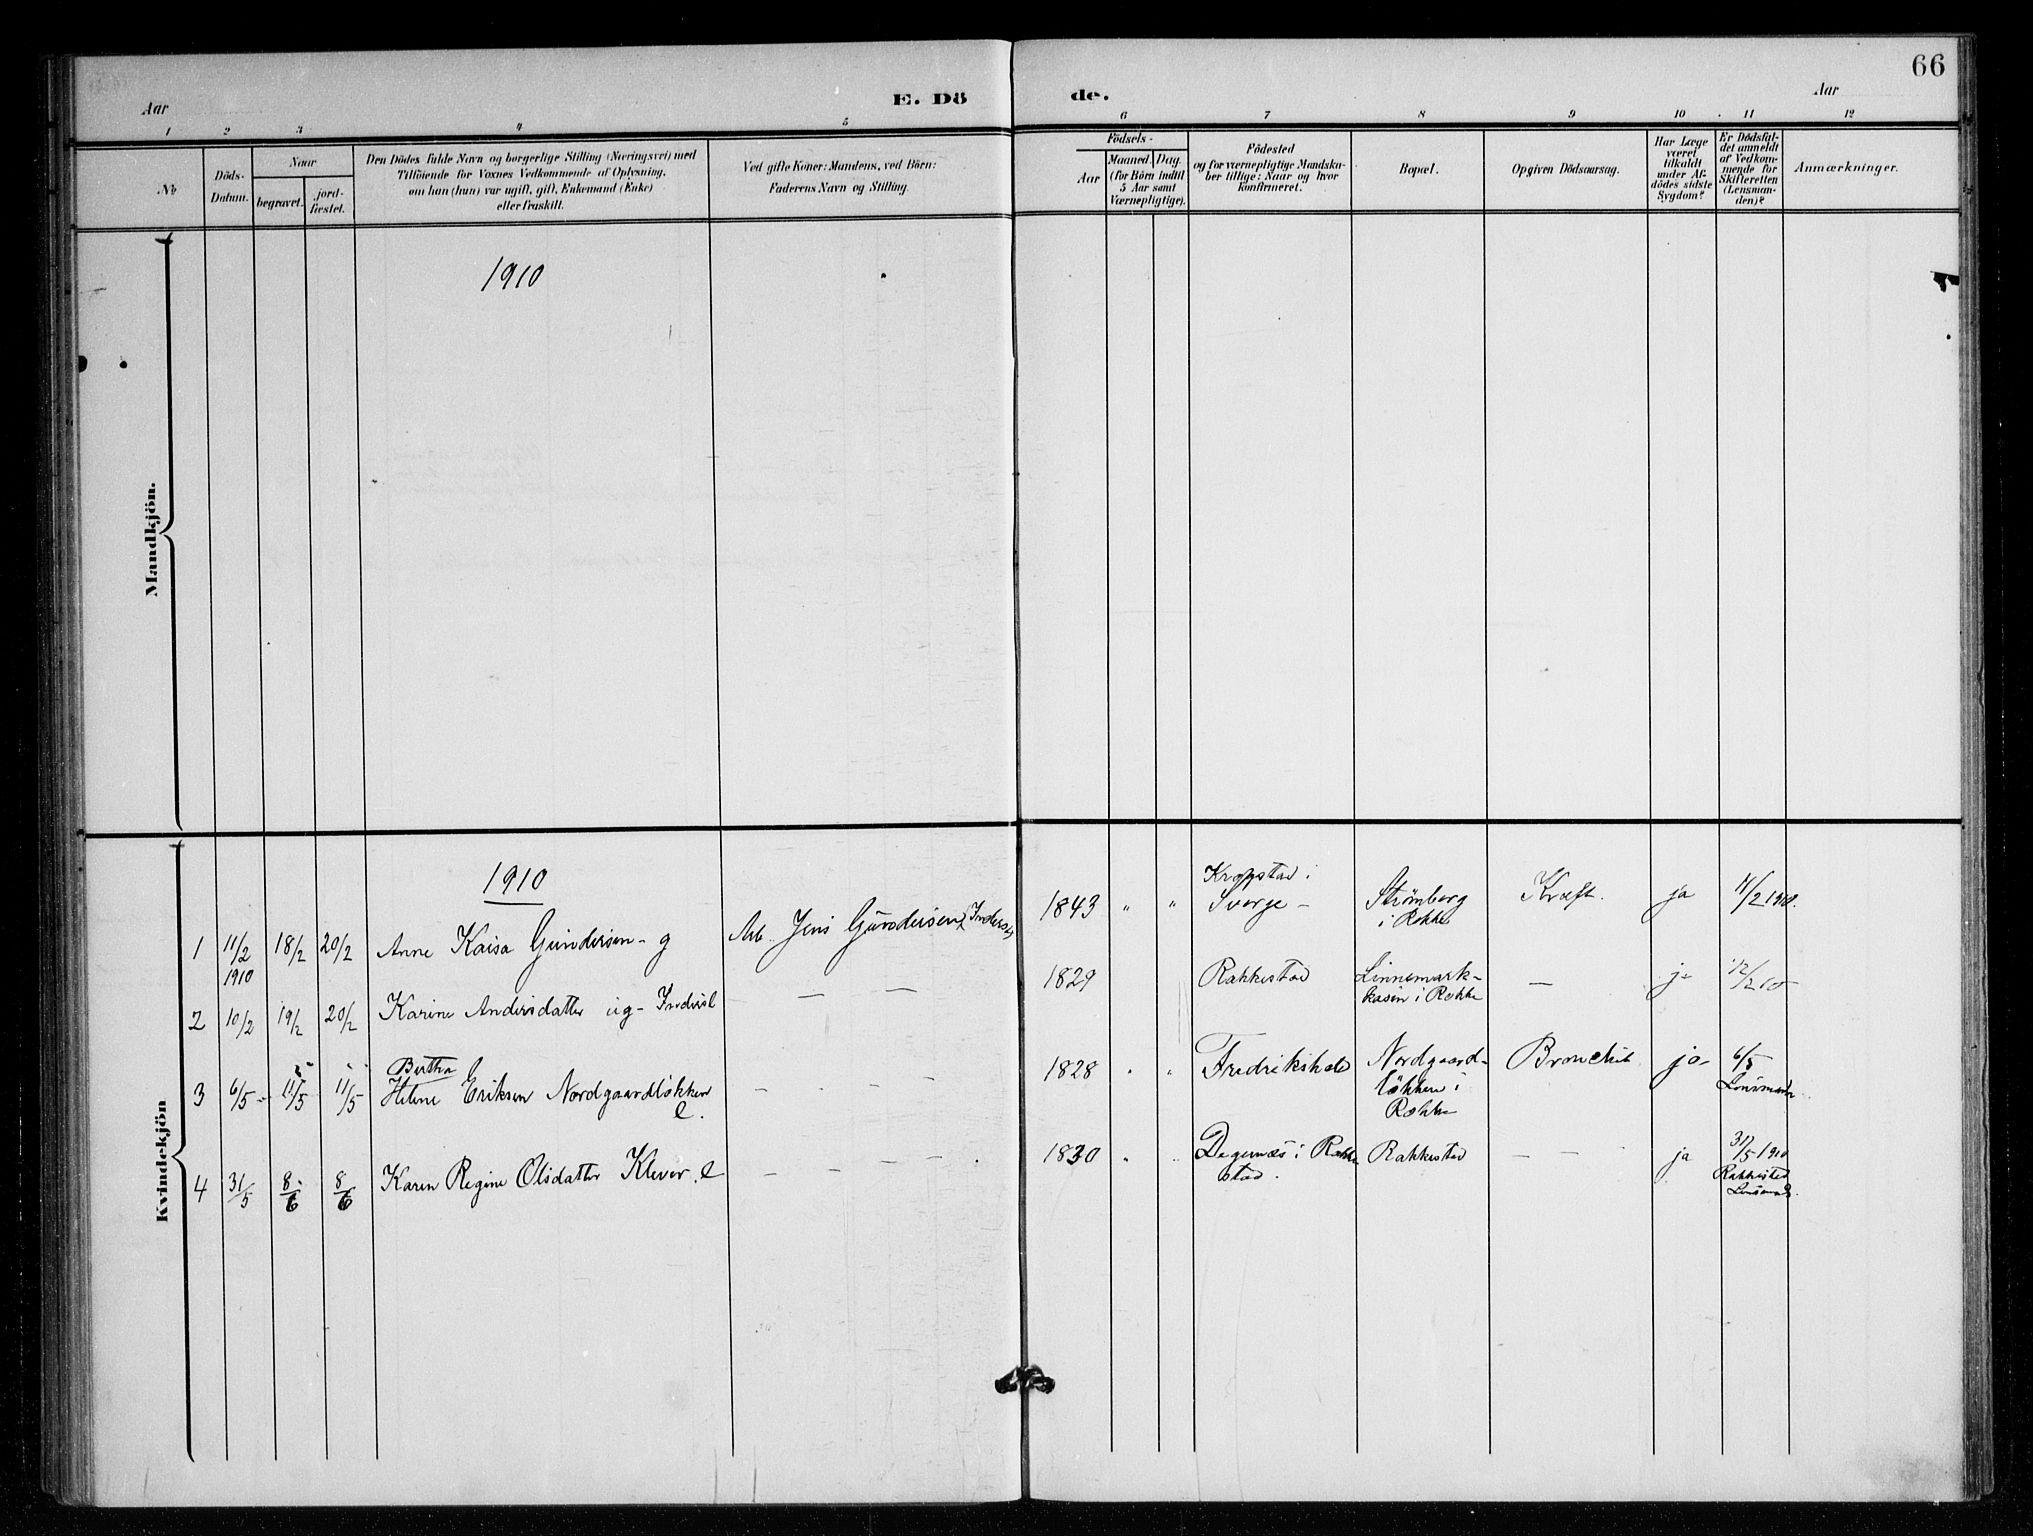 66
Aar
E. Dö
de.
Aar
1 2 3 4 5 6 7 8 9 10 11 12
No
Döds-
Datum.
Naar
begravet.
jord-
fæstet.
Den Dödes fulde Navn og borgerlige Stilling (Næringsvei) med
Tilföiende for Voxnes Vedkommende af Oplysning,
om han (hun) var ugift, gift, Enkemand (Enke)
eller fraskilt.
Ved gifte Koner: Mandens, ved Börn:
Faderens Navn og Stilling.
Födsels-
Aar
Maaned.
Dag.
(for Börn indtil
5 Aar samt
Værnepligtige).
Födested
og for værnepligtige Mandska-
ber tillige: Naar og hvor
Konfirmeret.
Bopæl.
Opgiven Dödsaarsag.
Har Læge
været
tilkaldt
under Af-
dödes sidste
Sygdom?
Er Dödsfal-
det anmeldt
af Vedkom-
mende for
Skifteretten
(Lensman-
den)?
Anmærkninger.
Mandkjön.
1910
Kvindekjön
1910
1 11/2 1910 18/2 20/2 Anne Kaisa Gundersen - g Arb. Jens Gundersen 1843 " " Kropstad i
Sverge - Strömberg
i Rokke Kræft. ja 11/2 1910.
2 10/2 19/2 20/2 Karine Andersdatter ug - — — 1829 Rakkestad Linnemark-
kasen i Rokke — ja 12/2 10
3 6/5 - 11/5 11/5 Bertha
Helene Eriksen Nordgaardløkken
e. - - - - 1828 " " Fredrikshald Nordgaard-
løkken i
Rokke Bronchit ja - 6/5
Lensmanden
4 31/5 8/6 8/6 Karen Regine Olsdatter Klever. e - - - - 1830 " " Degernæs i Rakke
stad. Rakkestad — — ja 31/5 1910
Rakkestad
Lensmand.